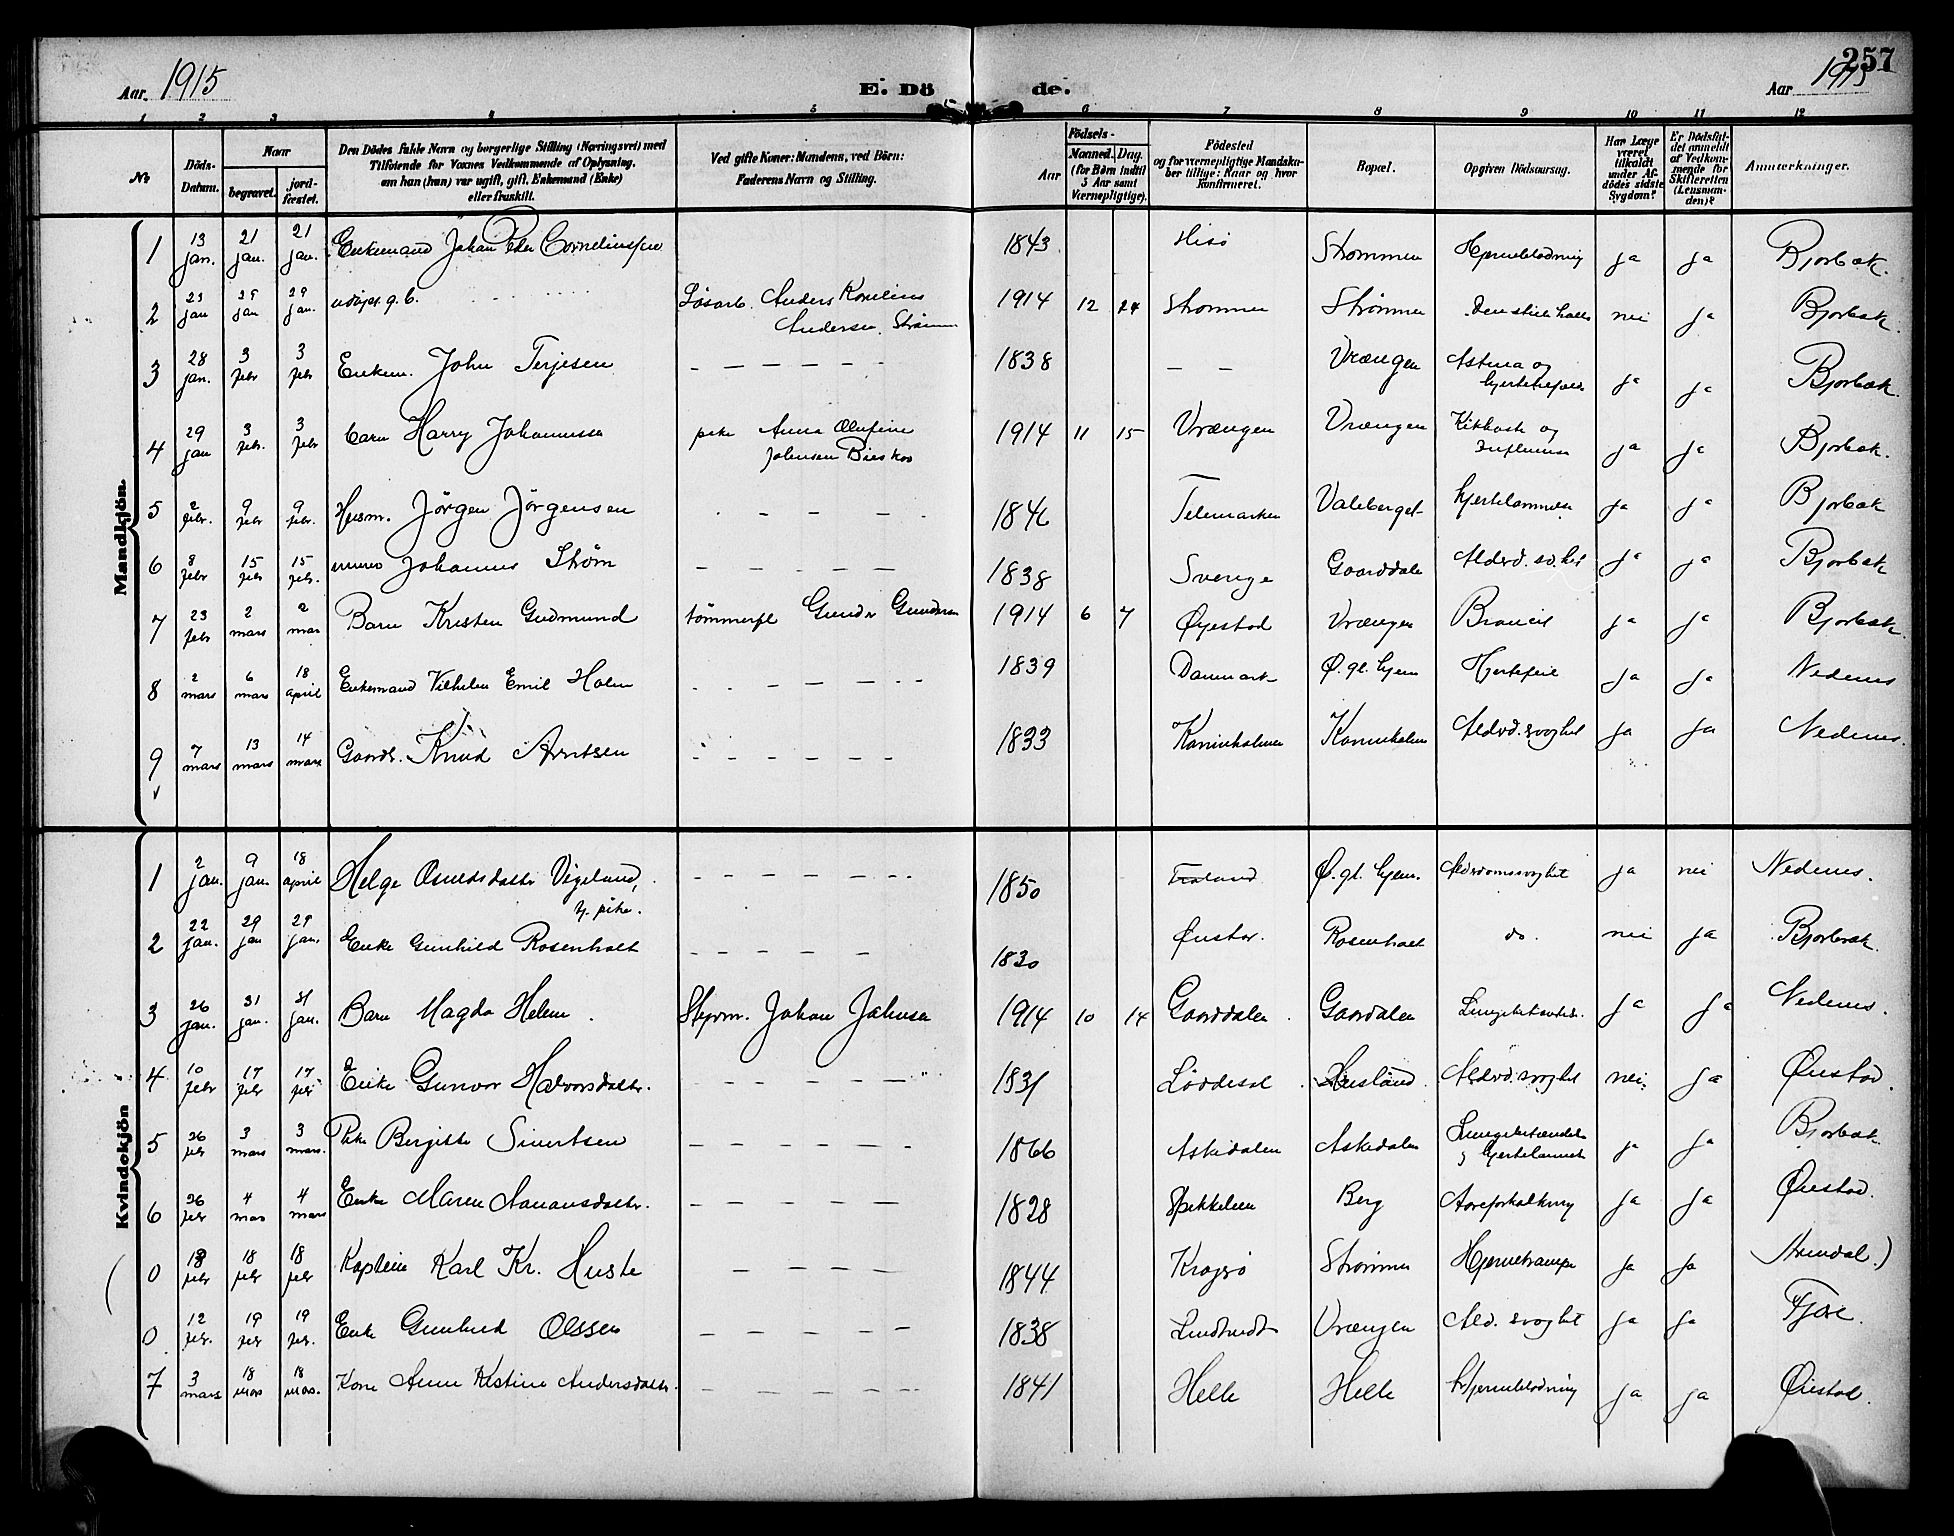 257
Aar 1915 E. Dö de. Aar 1915
1 2 3 4 5 6 7 8 9 10 11 12
No
Döds-Datum.
Naar
begravet.
jord-fæstet.
Den Dödes fulde Navn og borgerlige Stilling (Næringsvei) med
Tilföiende for Voxnes Vedkommende af Oplysning,
om han (hun) var ugift, gift, Enkemand (Enke)
eller fraskilt.
Ved gifte Koner: Mandens, ved Börn:
Faderens Navn og Stilling.
Födsels-
Aar
Maaned. Dag.
(for Börn indtil
5 Aar samt
Værnepligtige).
Födested
og for værnepligtige Mandska-
ber tillige: Naar og hvor
konfirmeret.
Bopæl.
Opgiven Dödsaarsag.
Har Læge
været
tilkaldt
under Af-
dödes sidste
Sygdom?
Er Dödsfal-
det anmeldt
af Vedkom-
mende for
Skifteretten
(Lensman-
den)?
Anmærkninger.
Mandkjön.
1 13 jan. 21 jan. 21 jan. Enkemand Johan Peder Corneliussen 1843 Hisö Strømmen Hjerneblødning ja ja Bjorbæk.
2 23 jan 29 jan 29 jan. udøpt g.b. Løsarb. Anders Kornelius
Andersen, Strømmen 1914 12 24 Strømmen Strømmen nei ja Bjorbæk.
3 28 jan. 3 febr 3 febr Enkem. John Terjesen – – – – – 1838 – – Vrængen Astma og
ja ja Bjorbæk.
4 29 jan 3 febr. 3 febr barn Harry Johannessen pike Anna Olufine
Johnsen 1914 11 15 Vrængen Vrængen Kikhoste og
Influensa ja ja Bjorbæk.
5 2 febr. 9 febr 9 febr. Husm. Jörgen Jörgensen – – – – Telemarken Valeberget hjertelammelse ja ja Bjorbæk
6 8 febr 15 febr 15 febr. Johannes Strøm – – – – – 1838 Sverige Gaarddale Alderd. sv.het ja ja Bjorbæk
7 23 febr 2 mars 2 mars Barn Kristen Gudmund tömmerfl Gunder Gundersen 1914 6 7 Øyestad Vrængen ja ja Bjorbæk.
8 2 mars 6 mars 18 april Enkemand Vilhelm Emil Holm – – – – 1839 Danmark Ø. gl. hjem Hjertefeil ja ja Nedenes
9 7 mars 13 mars 14 mars Gaardb. Knud Arntsen – – – – – – 1833 Kaninholmen Kaninholmen Alderd. svaghet ja ja Nedenes.
Kvindekjön
1 2 jan. 9 jan. 18 april Helge Osuldsdatter Vigeland,
pike. – – – – – 1850 Froland Ø. gl. hjem. Alderdomssvaghet ja nei Nedenes.
2 22 jan. 29 jan 29 jan. Enke Gunhild Rosenholt – – – – – 1830 Øiestad. Rosenholt do. nei ja Bjorbæk.
3 26 jan. 31 jan. 31 jan. Barn Magda Helene. Styrm. Johan Johnsen 1914 10 14 Gaarddalen. Gaardalen Lungebetændel. ja ja Nedenes.
4 10 febr 17 febr 17 febr Enke Gunvor Halvorsdatter. – – – – – 1831 Løddesøl Alderd. svaghet nei. ja Øiestad.
5 26 febr 3 mars 3 mars. Pike Bergitte Sivertsen – – – – – 1866 Askedalen Askedalen Lungebetændelse
og hjertelammelse ja ja Bjorbæk.
6 26 febr 4 mars 4 mars Enke Maren Aanansdatter. – – – – – 1828 Berg Aareforkalkning ja ja Øiestad.
( 0 febr 18 febr 18 febr Kaptein Karl Kr. Huste – – – – – 1844 Kragerø Strømmen Hjernekrampe ja ja Arendal. )
0 12 febr. 19 febr 19 febr. Enke Gunhild Olssen – – – – – 1838 Vrængen Ald. svaghet ja ja Fjære.
7 3 mars 18 mars 18 mars. Kone Anne Kistine Andersdatter. – – – – – 1841 Helle Helle Hjerneblødning ja ja Øiestad.